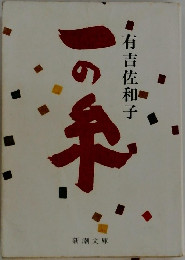 有吉佐和子
一の糸
新潮文庫